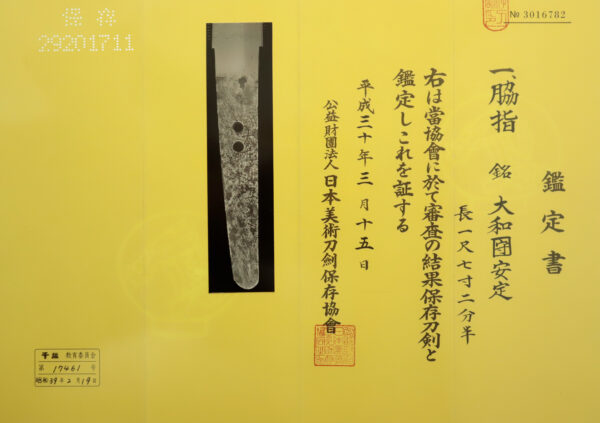 鑑定書
一、脇指 銘 大和国安定
長一尺七寸二分半
右は當協會に於て審査の結果保存刀剣と
鑑定しこれを証する
平成三十年三月十五日
公益財團法人日本美術刀劍保存協會
№ 3016782
保存
29201711
千葉 教育委員会
第 17461 号
昭和39年2月19日